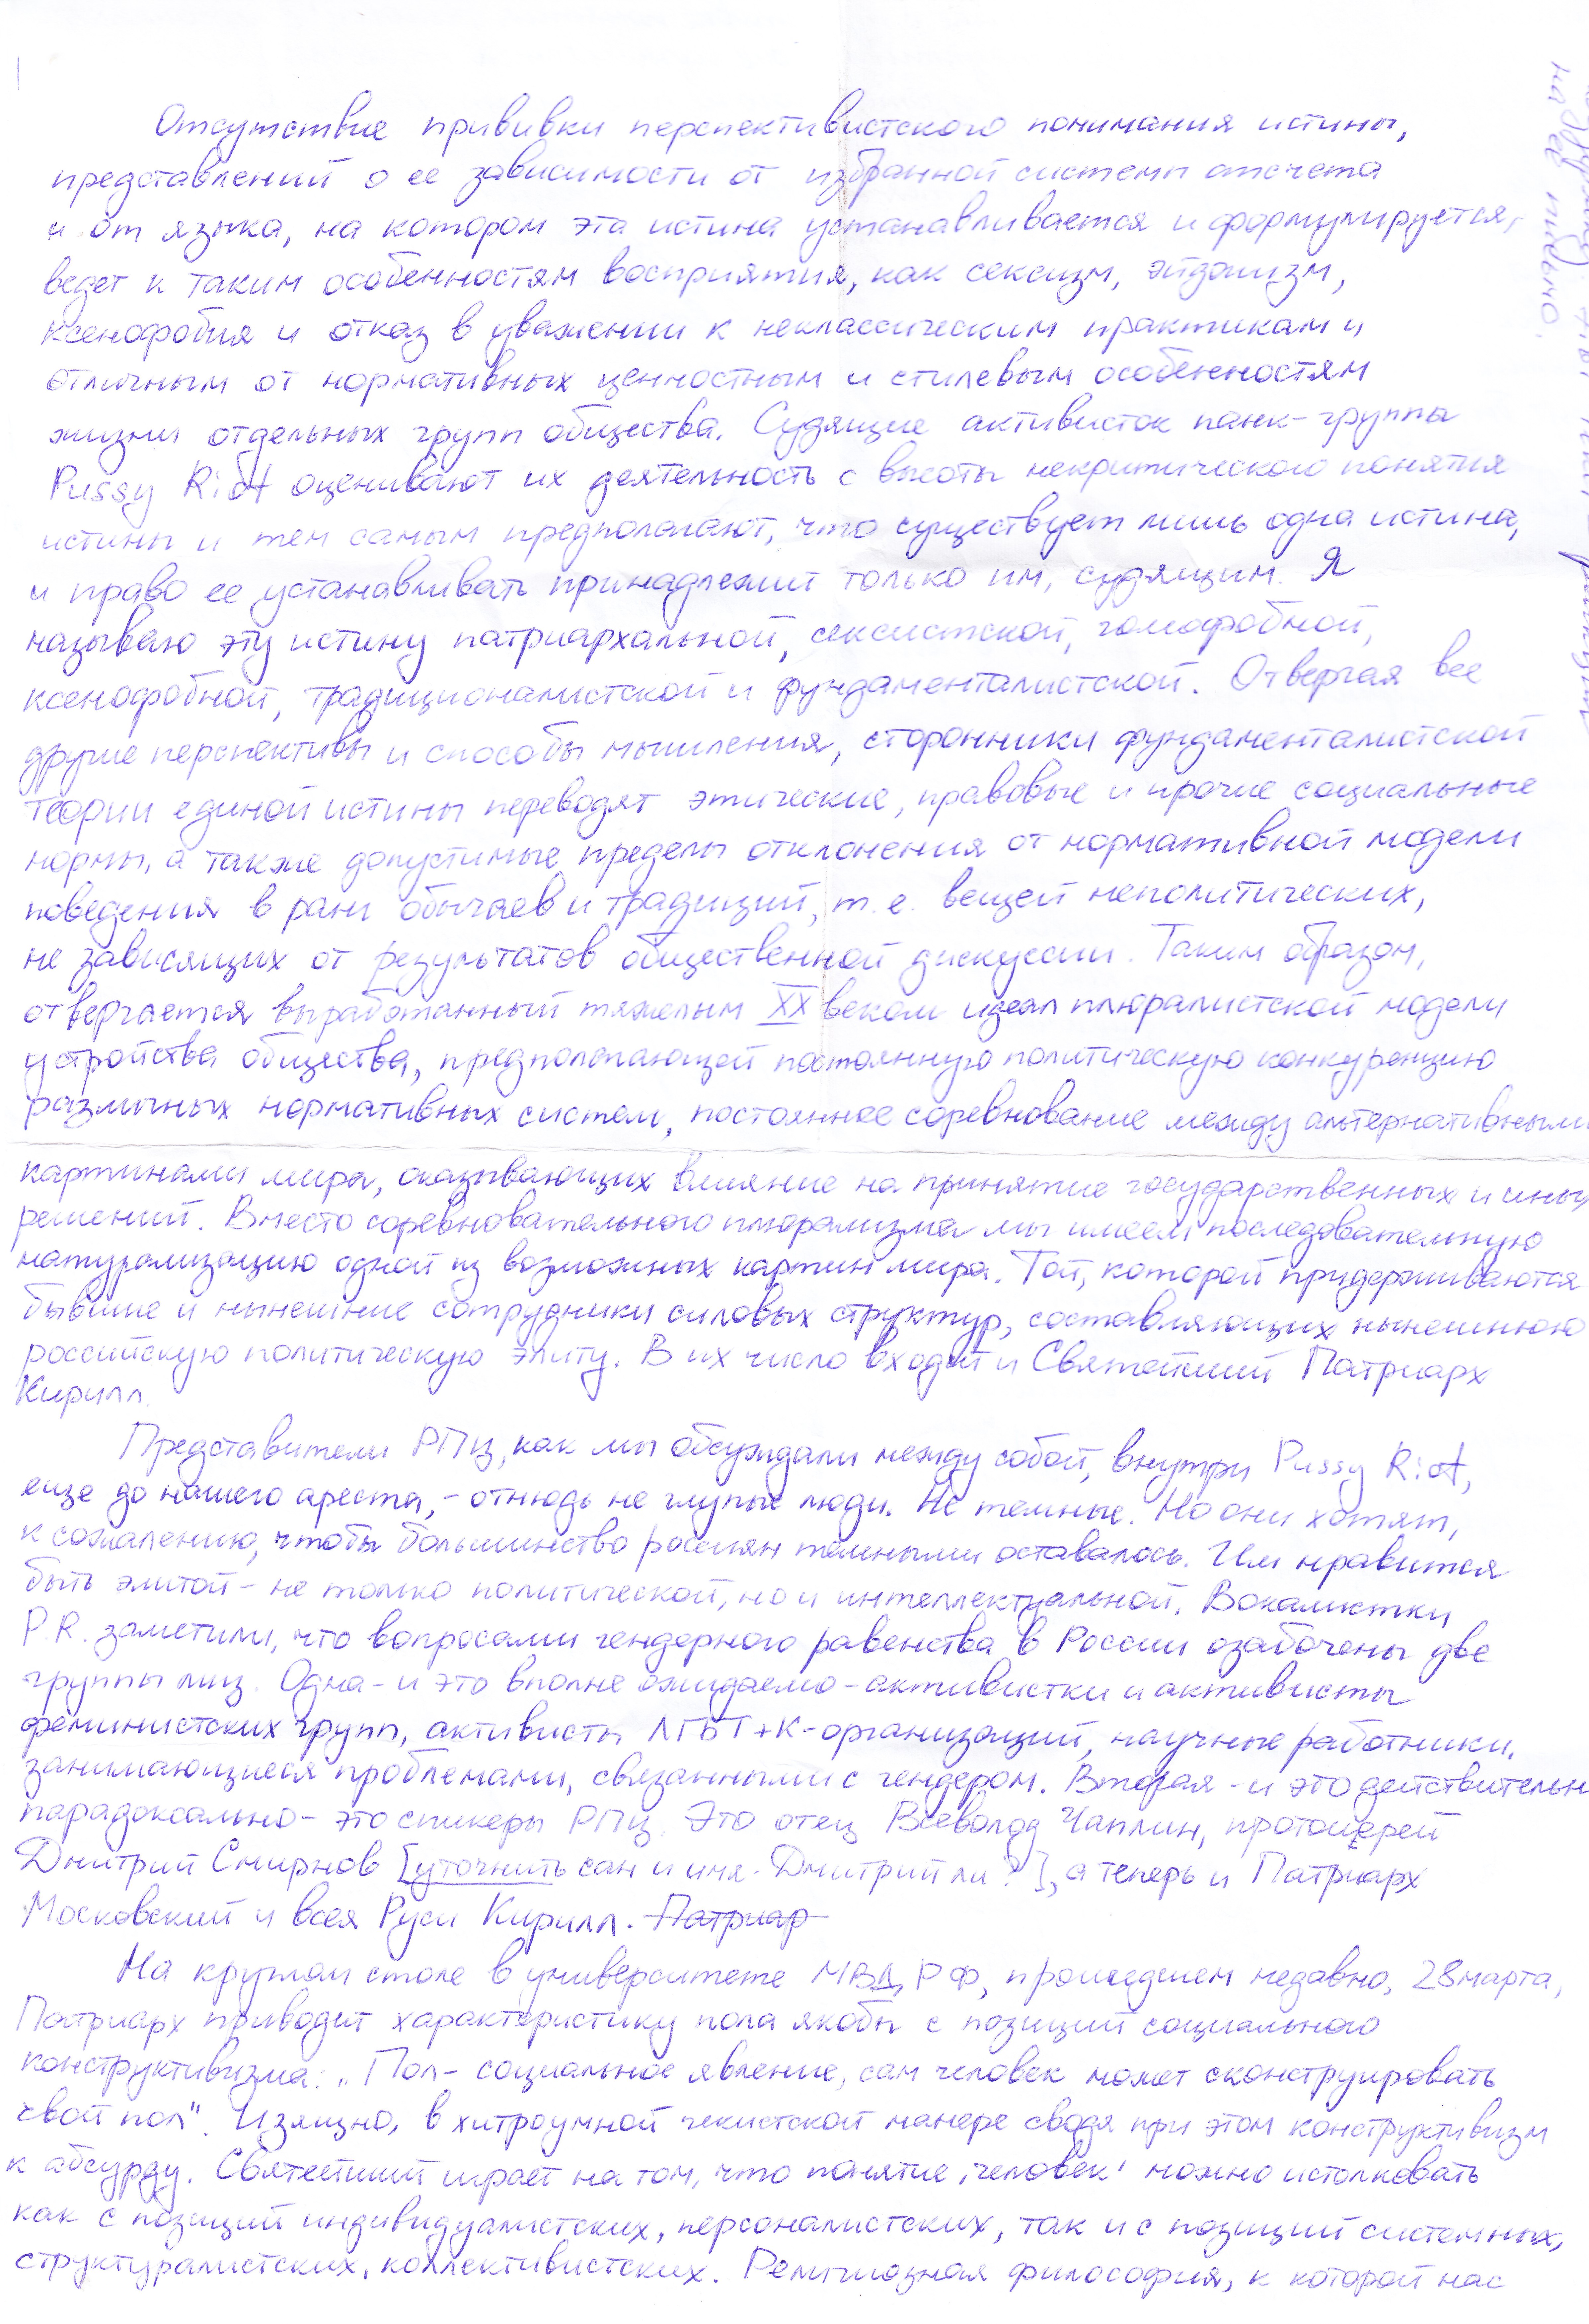 Отсутствие прививки перспективистского понимания истины,
представлений о ее зависимости от избранной системы отсчета
и от языка, на котором эта истина устанавливается и формулируется,
ведет к таким особенностям восприятия, как сексизм, эйджизм,
ксенофобия и отказ в уважении к неклассическим практикам и
отличным от нормативных ценностным и стилевым особенностям
жизни отдельных групп общества. Судящие активисток панк-группы
Pussy Riot оценивают их деятельность с высоты некритического понятия
истины и тем самым предполагают, что существует лишь одна истина,
и право ее устанавливать принадлежит только им, судящим. Я
называю эту истину патриархальной, сексистской, гомофобной,
ксенофобной, традиционалистской и фундаменталистской. Отвергая все
другие перспективы и способы мышления, сторонники фундаменталистской
теории единой истины переводят этические, правовые и прочие социальные
нормы, а также допустимые пределы отклонения от нормативной модели
поведения в ранг обычаев и традиций, т.е. вещей неполитических,
не зависящих от результатов общественной дискуссии. Таким образом,
отвергается выработанный тяжелым XX веком идеал плюралистской модели
устройства общества, предполагающей постоянную политическую конкуренцию
различных нормативных систем, постоянное соревнование между альтернативными
картинами мира, оказывающих влияние на принятие государственных и иных
решений. Вместо соревновательного плюрализма мы имеем последовательную
натурализацию одной из возможных картин мира. Той, которой придерживаются
бывшие и нынешние сотрудники силовых структур, составляющих нынешнюю
российскую политическую элиту. В их число входит и Святейший Патриарх
Кирилл.
Представители РПЦ, как мы обсуждали между собой, внутри Pussy Riot,
еще до нашего ареста, - отнюдь не глупые люди. Не темные. Но они хотят,
к сожалению, чтобы большинство россиян темными оставалось. Им нравится
быть элитой - не только политической, но и интеллектуальной. Вокалистки
P.R. заметили, что вопросами гендерного равенства в России озабочены две
группы лиц. Одна - и это вполне ожидаемо - активистки и активисты
феминистских групп, активисты ЛГБТ+К-организаций, научные работники,
занимающиеся проблемами, связанными с гендером. Вторая - и это действительн
парадоксально - это спикеры РПЦ. Это отец Всеволод Чаплин, протоиерей
Дмитрий Смирнов [уточнить сан и имя. Дмитрий ли?], а теперь и Патриарх
Московский и всея Руси Кирилл. Патриар
На круглом столе в университете МВД РФ, прошедшем недавно, 28 марта,
Патриарх приводит характеристику пола якобы с позиций социального
конструктивизма: „Пол - социальное явление, сам человек может сконструировать
свой пол". Изящно, в хитроумной чекистской манере сводя при этом конструктивизм
к абсурду. Святейший играет на том, что понятие ‚человек' можно истолковать
как с позиций индивидуалистских, персоналистских, так и с позиций системных,
структуралистских, коллективистских. Религиозная философия, к которой нас
на ее письмо.